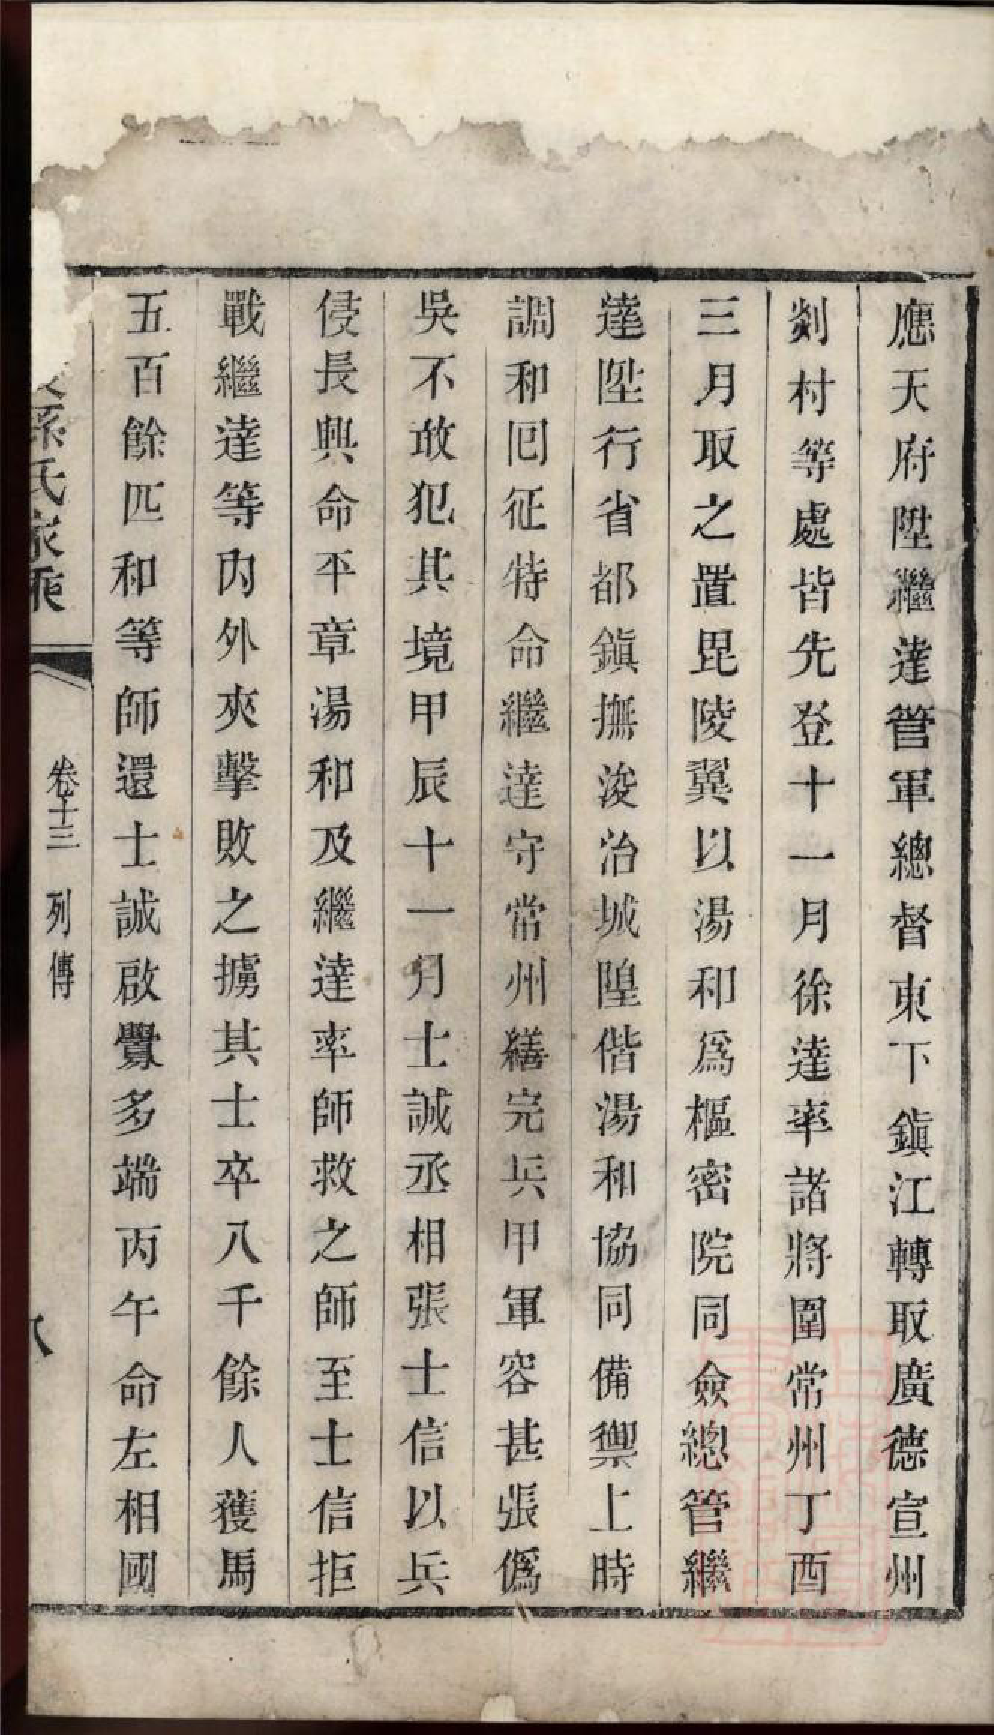 應天府陞繼達管軍總督東下鎮江轉取廣德宣州
剡村等處皆先登十一月徐達率諸將圍常州丁酉
三月取之置毘陵翼以湯和爲樞密院同僉總管繼
達陞行省都鎮撫浚治城隍偕湯和協同備禦上時
調和囘征特命繼達守常州繕完兵甲軍容甚張僞
吳不敢犯其境甲辰十一月士誠丞相張士信以兵
侵長興命平章湯和及繼達率師救之師至士信拒
戰繼達等內外夾擊敗之擄其士卒八千餘人獲馬
五百餘匹和等師還士誠啟釁多端丙午命左相國
孫氏家乘 卷十三 列傳 八